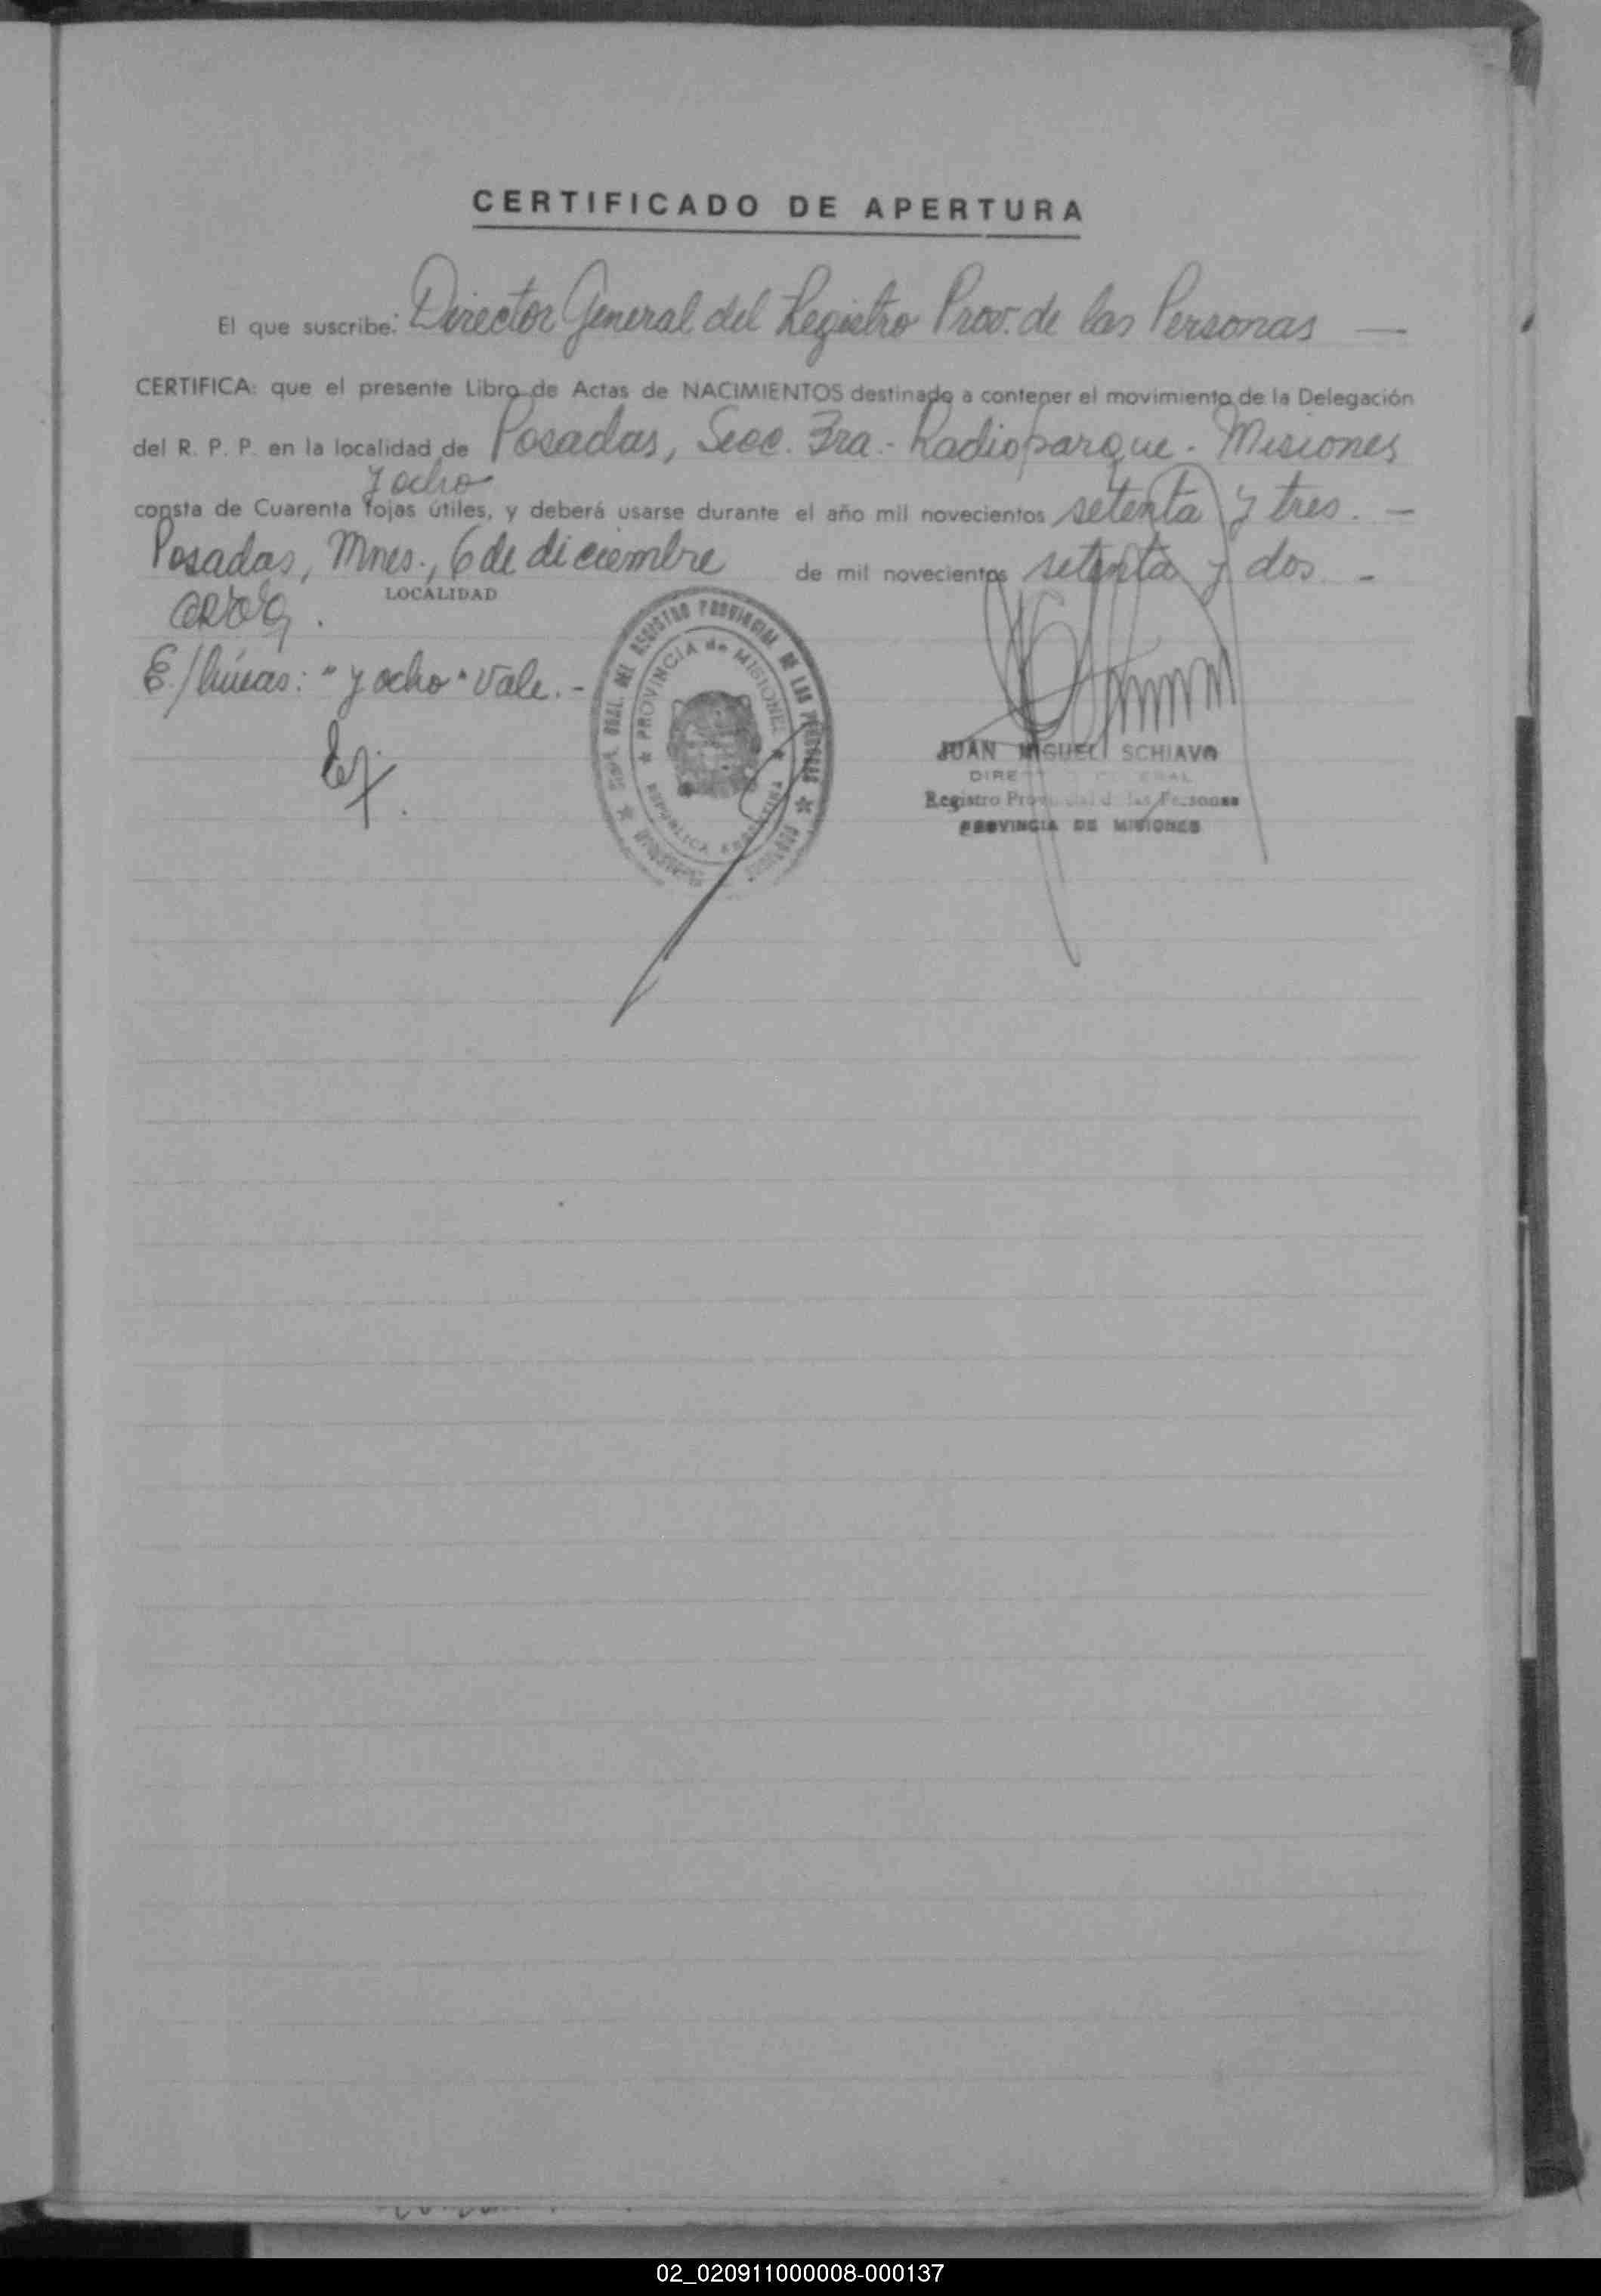 CERTIFICADO DE APERTURA
El que suscribe: Director General del Registro Prov. de las Personas —
CERTIFICA: que el presente Libro de Actas de NACIMIENTOS destinado a contener el movimiento de la Delegación
del R. P. P. en la localidad de Posadas, Secc. 3ra.- Radioparque - Misiones
y ocho
consta de Cuarenta fojas útiles, y deberá usarse durante el año mil novecientos setenta y tres. —
Posadas, Mnes., 6 de diciembre de mil novecientos setenta y dos -
LOCALIDAD
E./líneas: "y ocho" Vale.-
GRAL. DEL REGISTRO PROVINCIAL DE LAS PERSONAS
PROVINCIA de MISIONES
REPUBLICA ARGENTINA
JUAN MIGUEL SCHIAVO
Registro Provincial de las Personas
PROVINCIA DE MISIONES
02_020911000008-000137